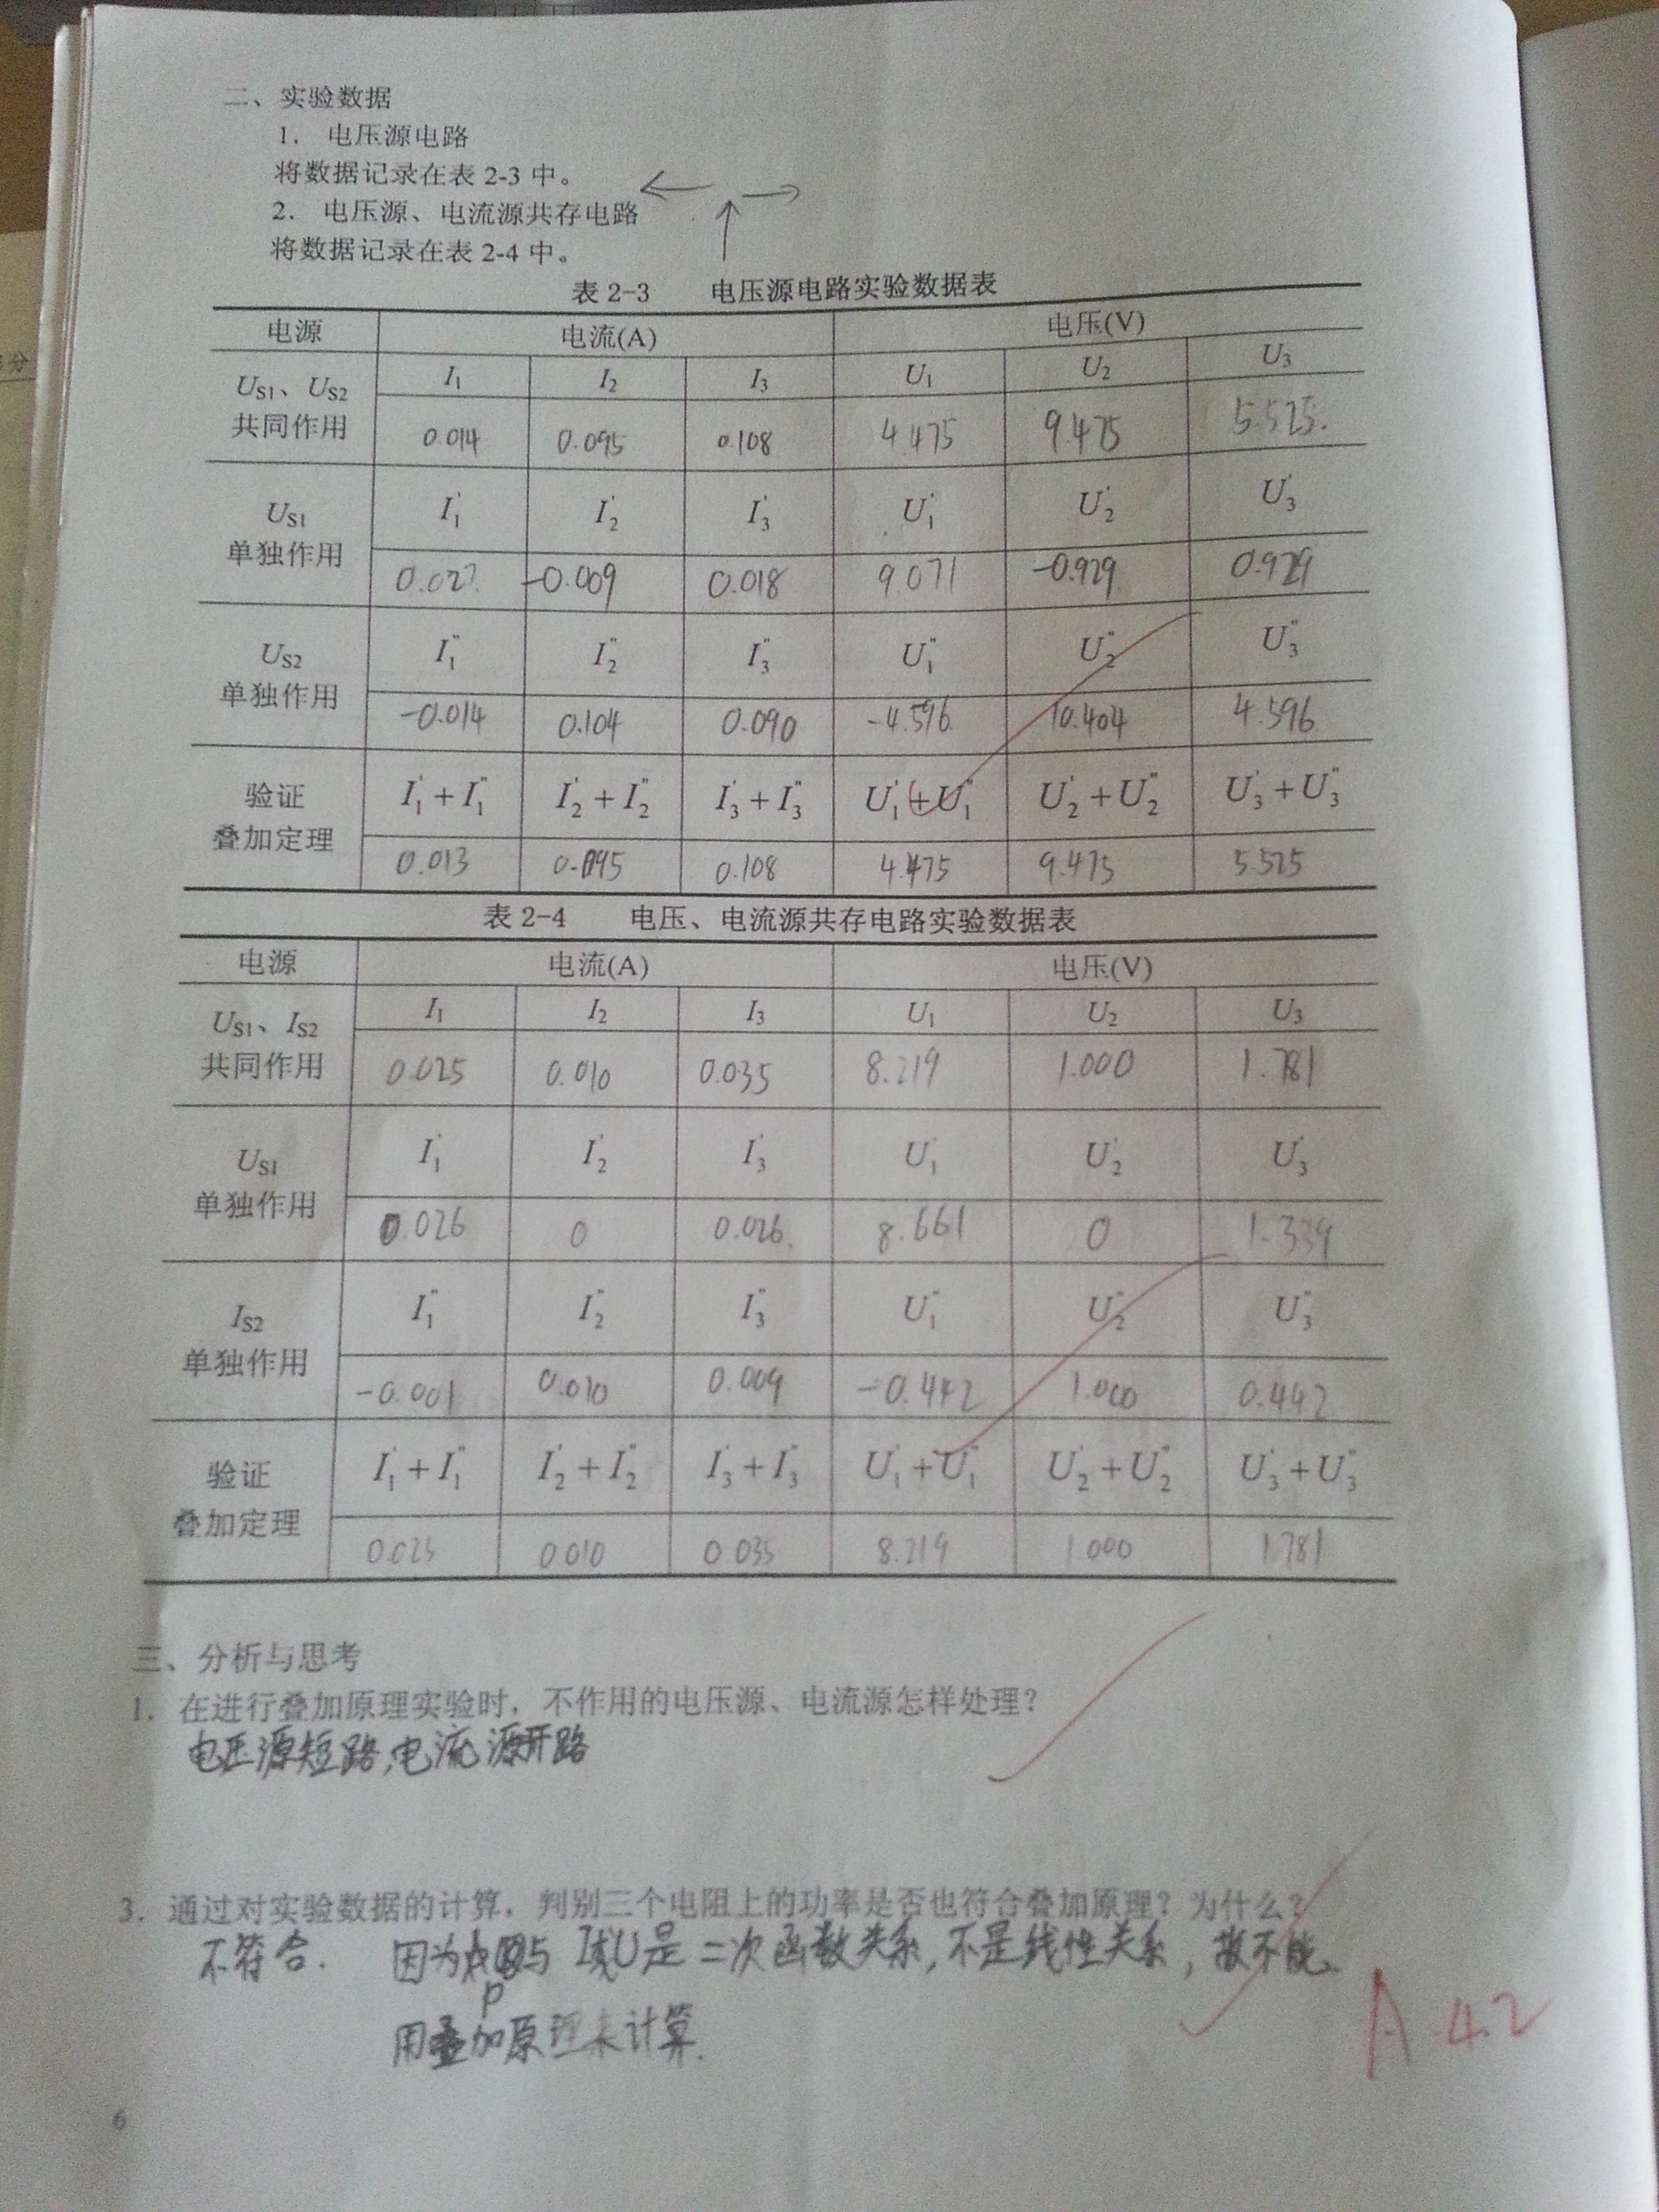 二、实验数据
1. 电压源电路
将数据记录在表 2-3 中。
2. 电压源、电流源共存电路
将数据记录在表 2-4 中。
表 2-3 电压源电路实验数据表
电源 电流(A) 电压(V)
US1、US2 共同作用 I1 I2 I3 U1 U2 U3
0.014 0.095 0.108 4.475 9.475 5.525.
US1 单独作用 I1' I2' I3' U1' U2' U3'
0.027 -0.009 0.018 9.071 -0.929 0.929
US2 单独作用 I1" I2" I3" U1" U2" U3"
-0.014 0.104 0.090 -4.596 10.404 4.596
验证 叠加定理 I1'+I1" I2'+I2" I3'+I3" U1'+U1" U2'+U2" U3'+U3"
0.013 0.095 0.108 4.475 9.475 5.525
表 2-4 电压、电流源共存电路实验数据表
电源 电流(A) 电压(V)
US1、IS2 共同作用 I1 I2 I3 U1 U2 U3
0.025 0.010 0.035 8.219 1.000 1.781
US1 单独作用 I1' I2' I3' U1' U2' U3'
0.026 0 0.026. 8.661 0 1.339
IS2 单独作用 I1" I2" I3" U1" U2" U3"
-0.001 0.010 0.009 -0.442 1.000 0.442
验证 叠加定理 I1'+I1" I2'+I2" I3'+I3" U1'+U1" U2'+U2" U3'+U3"
0.025 0.010 0.035 8.219 1.000 1.781
三、分析与思考
1. 在进行叠加原理实验时，不作用的电压源、电流源怎样处理？
电压源短路,电流源开路
3. 通过对实验数据的计算，判别三个电阻上的功率是否也符合叠加原理？为什么？
不符合. 因为P与 I或U是二次函数关系,不是线性关系，故不能
用叠加原理来计算.
A 4.2
6